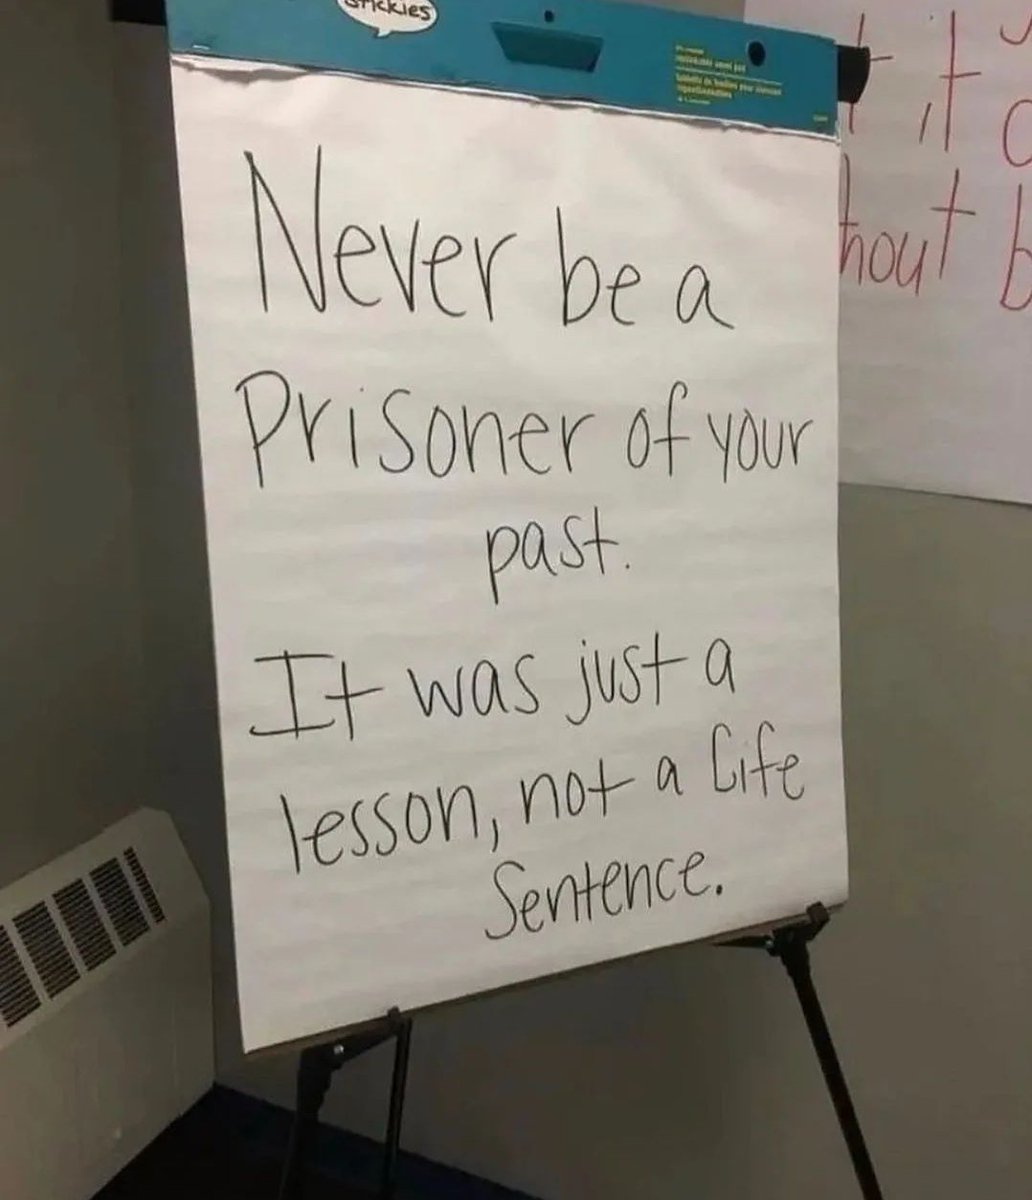 stickies
Never be a
Prisoner of your
past.
It was just a
lesson, not a life
Sentence.
it
b